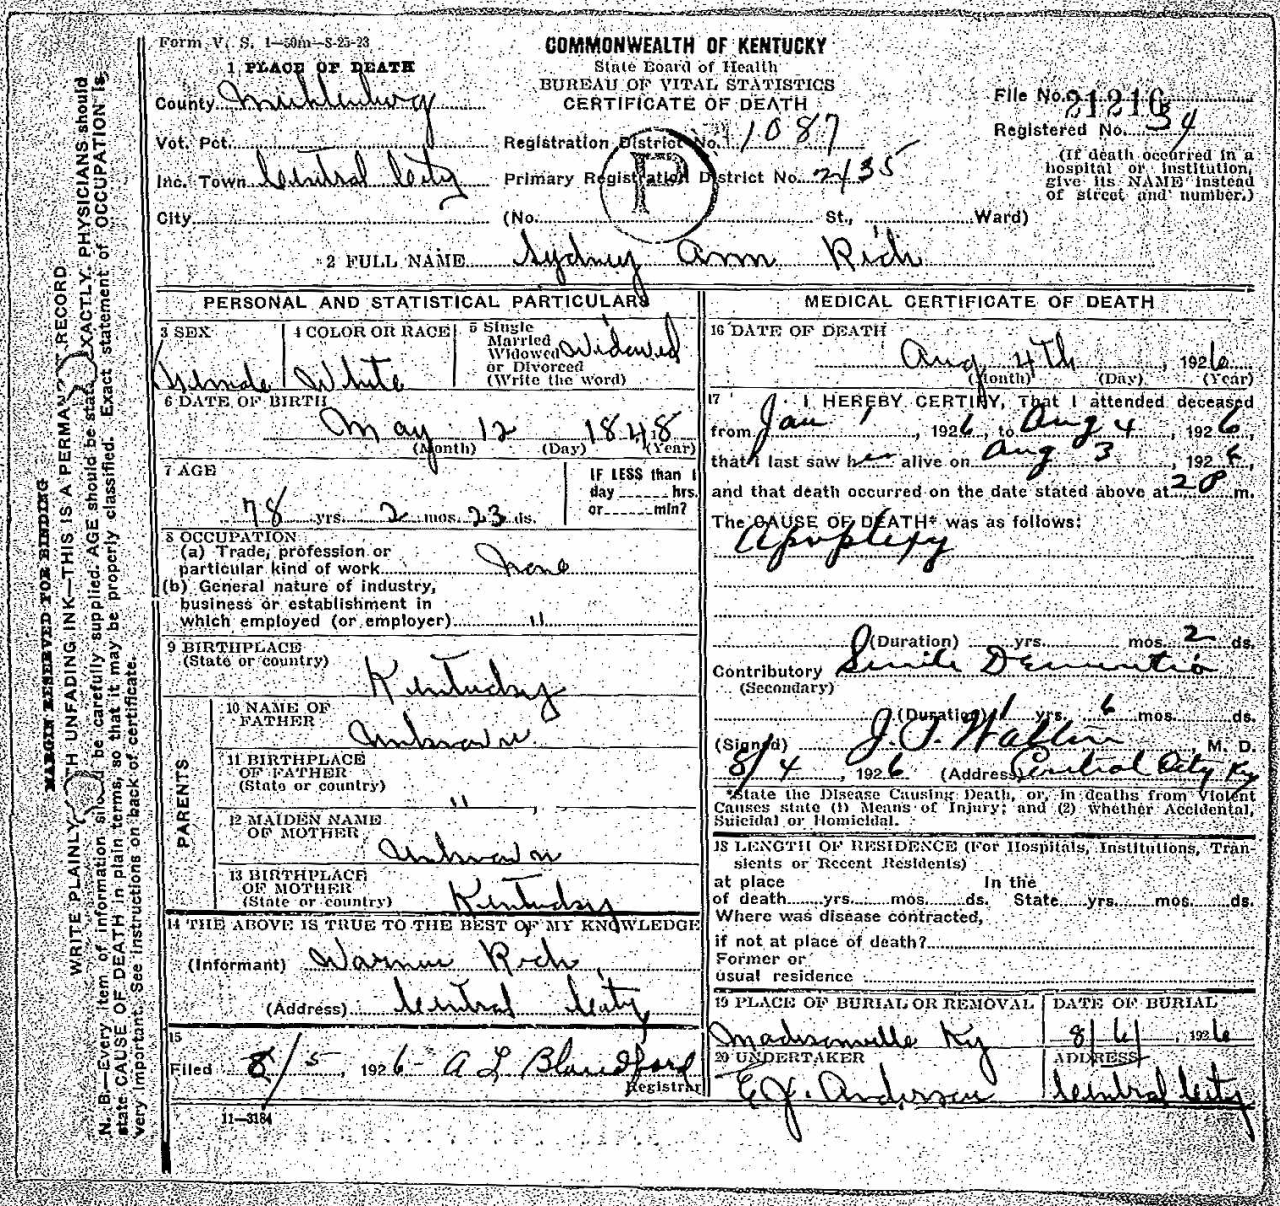 Form V. S. 1—50m—8-25-23
COMMONWEALTH OF KENTUCKY
State Board of Health
BUREAU OF VITAL STATISTICS
CERTIFICATE OF DEATH
File No. 21216
Registered No. 34
(If death occurred in a
hospital or institution,
give its NAME instead
of street and number.)
1 PLACE OF DEATH
County Muhlenberg
Vot. Pct.
Inc. Town Central City
City
Registration District No. 1087
Primary Registration District No. 2435
P
(No. St., Ward)
2 FULL NAME Sydney Ann Rich
PERSONAL AND STATISTICAL PARTICULARS
3 SEX
Female
4 COLOR OR RACE
White
5 Single
Married
Widowed
or Divorced
(Write the word)
Widowed
6 DATE OF BIRTH
May 12 1848
(Month) (Day) (Year)
7 AGE
78 yrs. 2 mos. 23 ds.
IF LESS than 1
day hrs.
or min?
8 OCCUPATION
(a) Trade, profession or
particular kind of work None
(b) General nature of industry,
business or establishment in
which employed (or employer) "
9 BIRTHPLACE
(State or country)
Kentucky
PARENTS
10 NAME OF
FATHER
Unknown
11 BIRTHPLACE
OF FATHER
(State or country)
"
12 MAIDEN NAME
OF MOTHER
Unknown
13 BIRTHPLACE
OF MOTHER
(State or country) Kentucky
14 THE ABOVE IS TRUE TO THE BEST OF MY KNOWLEDGE
(Informant) Rich
(Address) Central City
15
Filed 8/5, 1926 A L Blandford
Registrar
11—3184
MEDICAL CERTIFICATE OF DEATH
16 DATE OF DEATH
Aug 4th, 1926
(Month) (Day) (Year)
17 I HEREBY CERTIFY, That I attended deceased
from Jan 1, 1926, to Aug 4, 1926,
that I last saw her alive on Aug 3, 192
and that death occurred on the date stated above at m.
The CAUSE OF DEATH* was as follows:
Apoplexy
(Duration) yrs. mos. 2 ds.
Contributory Senile Dementia
(Secondary)
(Duration) 1 yrs. 6 mos. ds.
(Signed) J. T. M. D.
8/4, 1926 (Address) Central City Ky
*State the Disease Causing Death, or, in deaths from Violent
Causes state (1) Means of Injury; and (2) whether Accidental,
Suicidal or Homicidal.
18 LENGTH OF RESIDENCE (For Hospitals, Institutions, Tran-
sients or Recent Residents)
at place In the
of death yrs. mos. ds. State yrs. mos. ds.
Where was disease contracted,
if not at place of death?
Former or
usual residence
19 PLACE OF BURIAL OR REMOVAL
Madisonville Ky
DATE OF BURIAL
8/6/, 1926
20 UNDERTAKER
E J. Anderson
ADDRESS
Central City
MARGIN RESERVED FOR BINDING
WRITE PLAINLY WITH UNFADING INK—THIS IS A PERMANENT RECORD
N. B.—Every item of information should be carefully supplied. AGE should be stated EXACTLY. PHYSICIANS should
state CAUSE OF DEATH in plain terms, so that it may be properly classified. Exact statement of OCCUPATION is
very important. See instructions on back of certificate.